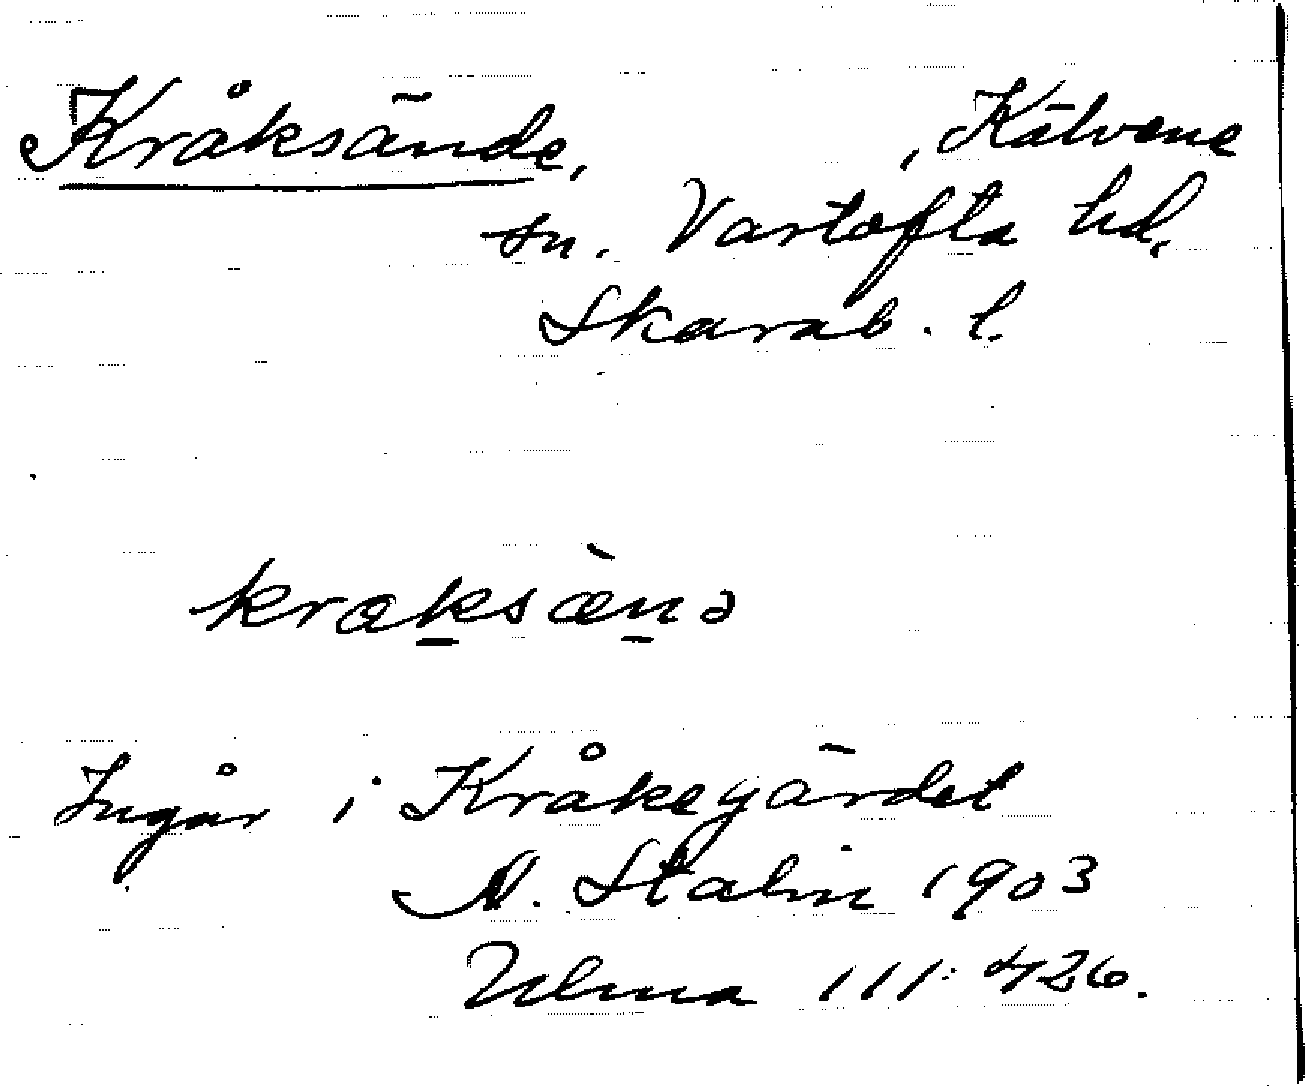 Kråksände, , Kälvene
sn. Vartofta hd.
Skarab. l.
krɑksæ̀nə
Ingår i Kråkegärdet
N. Stalin 1903
Ulma 111:426.